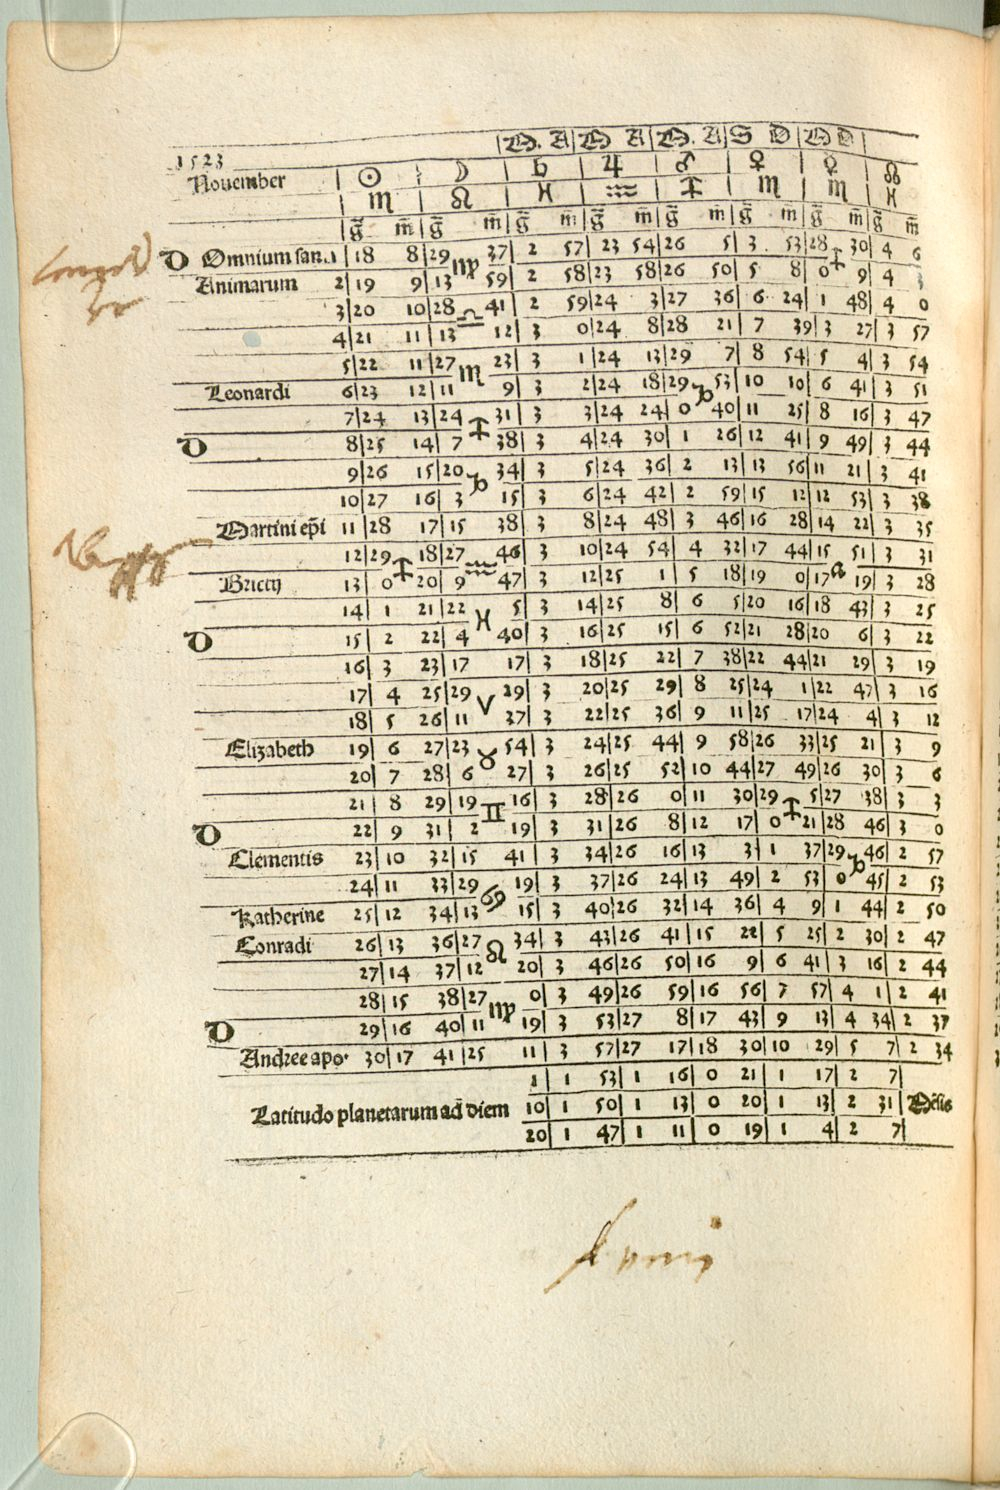 M. A M A M. A S D M D
1523
November ☉ ☽ ♄ ♃ ♂ ♀ ☿ ☊
♏ ♌ ♓ ♒ ♐ ♏ ♏ ♓
g̅ m̅ g̅ m̅ g̅ m̅ g̅ m̅ g̅ m̅ g̅ m̅ g̅ m̅ g̅ m̅
D Omnium san. 1 18 8 29 37 2 57 23 54 26 5 3 53 28 30 4 6
Animarum 2 19 9 13 ♍ 59 2 58 23 58 26 50 5 8 0 ♐ 9 4 3
3 20 10 28 41 2 59 24 3 27 36 6 24 1 48 4 0
4 21 11 13 ♎ 12 3 0 24 8 28 21 7 39 3 27 3 57
5 22 11 27 23 3 1 24 13 29 7 8 54 5 4 3 54
Leonardi 6 23 12 11 ♏ 9 3 2 24 18 29 53 10 10 6 41 3 51
7 24 13 24 31 3 3 24 24 0 ♑ 40 11 25 8 16 3 47
D 8 25 14 7 ♐ 38 3 4 24 30 1 26 12 41 9 49 3 44
9 26 15 20 34 3 5 24 36 2 13 13 56 11 21 3 41
10 27 16 3 ♑ 15 3 6 24 42 2 59 15 12 12 53 3 38
Martini ep̅i 11 28 17 15 38 3 8 24 48 3 46 16 28 14 22 3 35
12 29 18 27 46 3 10 24 54 4 32 17 44 15 51 3 31
Briccij 13 0 ♐ 20 9 ♒ 47 3 12 25 1 5 18 19 0 17 a 19 3 28
14 1 21 22 5 3 14 25 8 6 5 20 16 18 43 3 25
D 15 2 22 4 ♓ 40 3 16 25 15 6 52 21 28 20 6 3 22
16 3 23 17 17 3 18 25 22 7 38 22 44 21 29 3 19
17 4 25 29 29 3 20 25 29 8 25 24 1 22 47 3 16
18 5 26 11 ♈ 37 3 22 25 36 9 11 25 17 24 4 3 12
Elizabeth 19 6 27 23 54 3 24 25 44 9 58 26 33 25 21 3 9
20 7 28 6 ♉ 27 3 26 25 52 10 44 27 49 26 30 3 6
21 8 29 19 16 3 28 26 0 11 30 29 5 27 38 3 3
D 22 9 31 2 ♊ 19 3 31 26 8 12 17 0 ♐ 21 28 46 3 0
Clementis 23 10 32 15 41 3 34 26 16 13 3 1 37 29 46 2 57
24 11 33 29 19 3 37 26 24 13 49 2 53 0 ♑ 45 2 53
Katherine 25 12 34 13 ♋ 15 3 40 26 32 14 36 4 9 1 44 2 50
Conradi 26 13 36 27 34 3 43 26 41 15 22 5 25 2 30 2 47
27 14 37 12 ♌ 20 3 46 26 50 16 9 6 41 3 16 2 44
28 15 38 27 0 3 49 26 59 16 56 7 57 4 1 2 41
D 29 16 40 11 ♍ 19 3 53 27 8 17 43 9 13 4 34 2 37
Andree apo. 30 17 41 25 11 3 57 27 17 18 30 10 29 5 7 2 34
1 1 53 1 16 0 21 1 17 2 7
Latitudo planetarum ad diem 10 1 50 1 13 0 20 1 13 2 31 Me̅sis
20 1 47 1 11 0 19 1 4 2 7